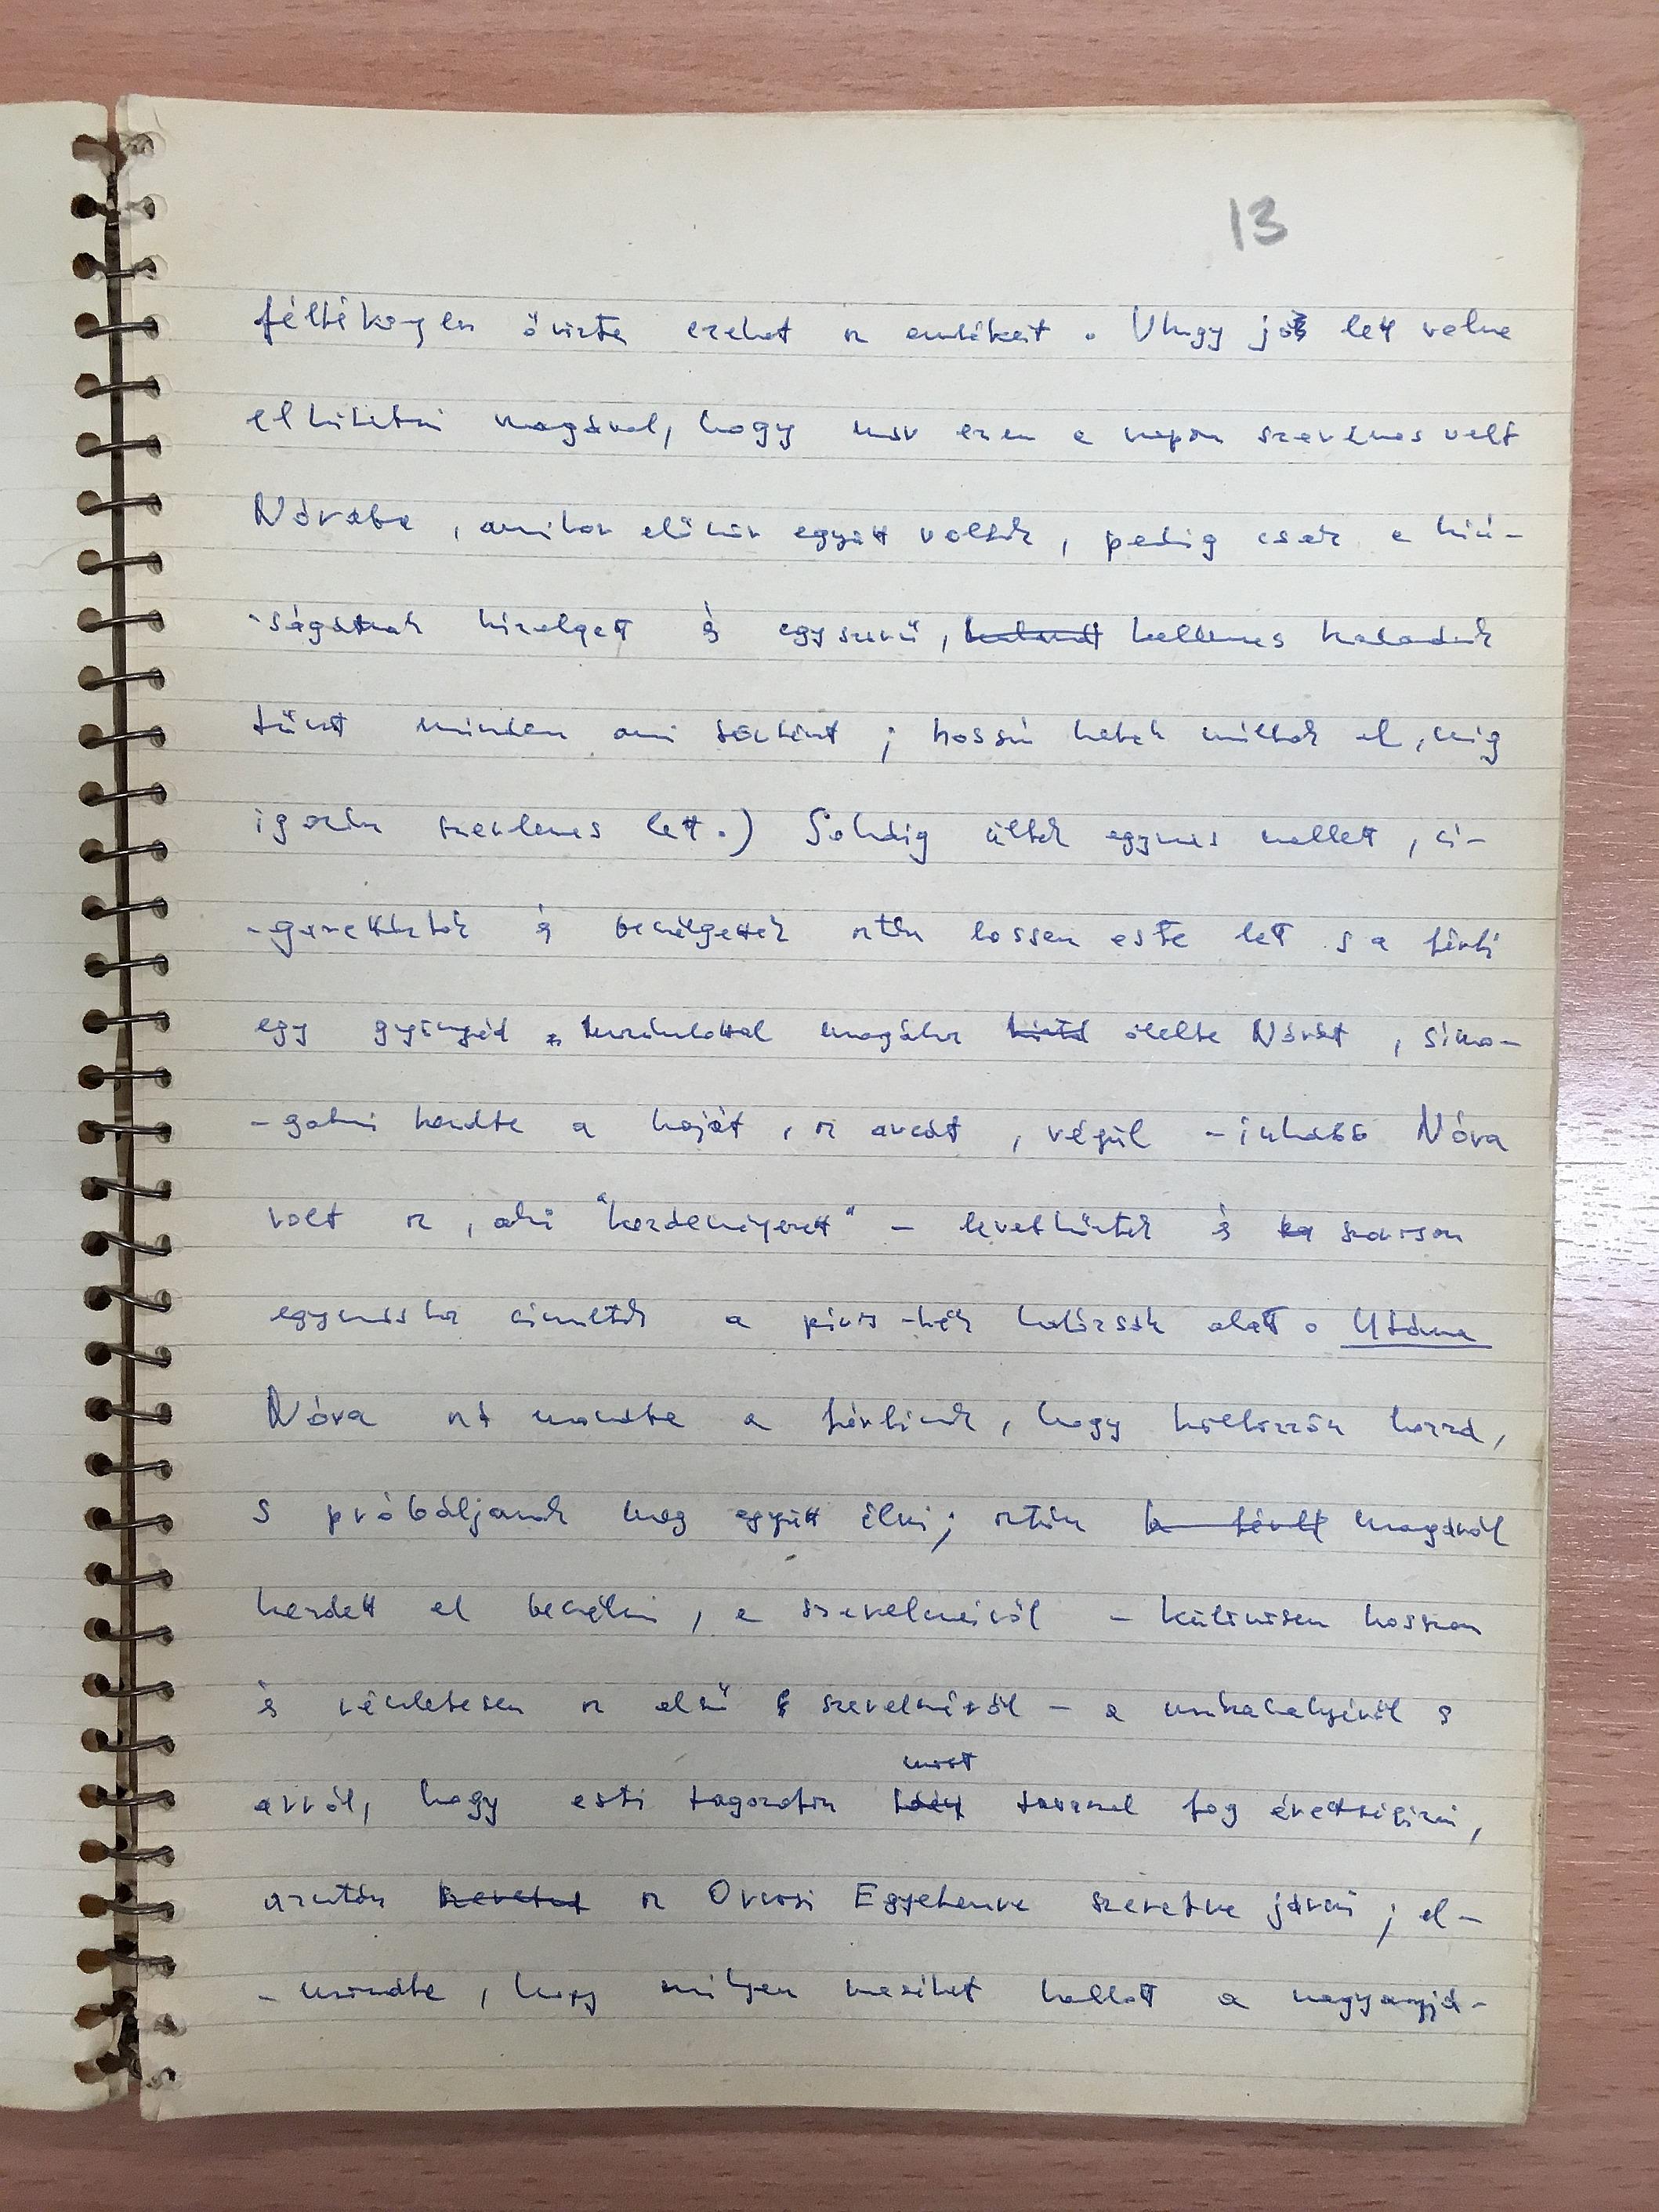 13
féltékenyen őrizte ezeket az emlékeit. Úhogy jó lett volna
elhitetni magával, hogy már ezen a napon szerelmes volt
Nórába, amikor először együtt voltak, pedig csak a hiú-
-ságának hizelgett és egyszerű, kellemes kalandnak
tűnt minden ami történt; hosszú hetek múltak el, mig
igazán szerelmes lett.) Sokáig ültek egymás mellett, ci-
-garettáztak és beszélgettek aztán lassan este lett s a férfi
egy gyöngéd mozdulattal magához ölelte Nórát, simo-
-gatni kezdte a haját, az arcát, végül - inkább Nóra
volt az, aki "kezdeményezett" - levetkőztek és
egymáshoz simultak a piros-kék alatt. Utána
Nóra azt mondta a férfinak, hogy költözzön hozzá,
s próbáljanak meg együtt élni; aztán magáról
kezdett el beszélni, a szerelmeiről - különösen hosszan
és részletesen az első szerelméről - a munkahelyéről s
most
arról, hogy esti tagozatán tavasszal fog érettségizni,
azután az Orvosi Egyetemre szeretne járni; el-
-mondta, hogy milyen meséket hallott a nagyanyjá-